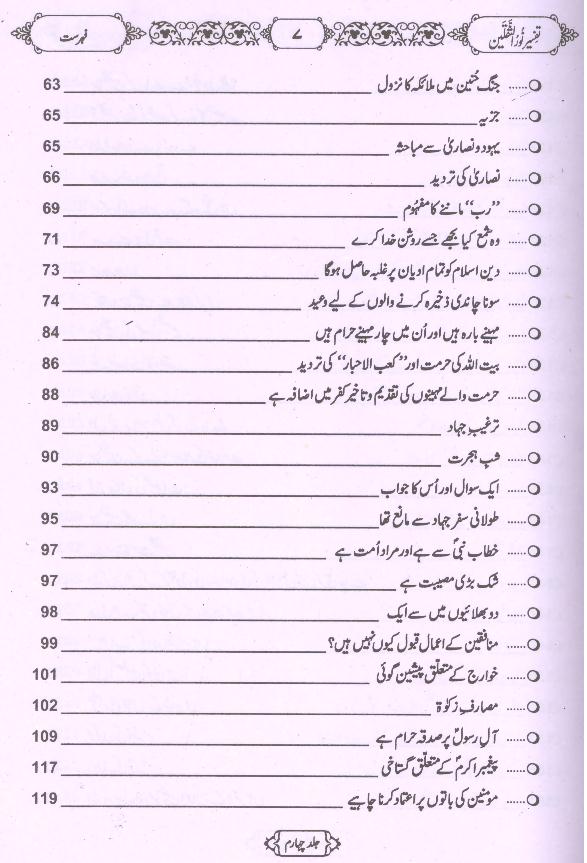 تفسیر نور الثقلین ۷ فہرست
جنگ حُنین میں ملائکہ کا نزول 63
جزیہ 65
یہود و نصاریٰ سے مباحثہ 65
نصاریٰ کی تردید 66
”رب“ ماننے کا مفہُوم 69
وہ شمع کیا بجھے جسے روشن خدا کرے 71
دین اسلام کو تمام ادیان پر غلبہ حاصل ہوگا 73
سونا چاندی ذخیرہ کرنے والوں کے لیے وعید 74
مہینے بارہ ہیں اور اُن میں چار مہینے حرام ہیں 84
بیت اللہ کی حرمت اور ”کعب الاحبار“ کی تردید 86
حرمت والے مہینوں کی تقدیم و تاخیر کفر میں اضافہ ہے 88
ترغیبِ جہاد 89
شبِ ہجرت 90
ایک سوال اور اُس کا جواب 93
طولانی سفر جہاد سے مانع تھا 95
خطاب نبیؐ سے ہے اور مراد اُمت ہے 97
شک بڑی مصیبت ہے 97
دو بھلائیوں میں سے ایک 98
منافقین کے اعمال قبول کیوں نہیں ہیں؟ 99
خوارج کے متعلّق پیشین گوئی 101
مصارفِ زکوٰۃ 102
آلِ رسولؐ پر صدقہ حرام ہے 109
پیغمبر اکرمؐ کے متعلّق گستاخی 117
مومنین کی باتوں پر اعتماد کرنا چاہیے 119
جلد چہارم